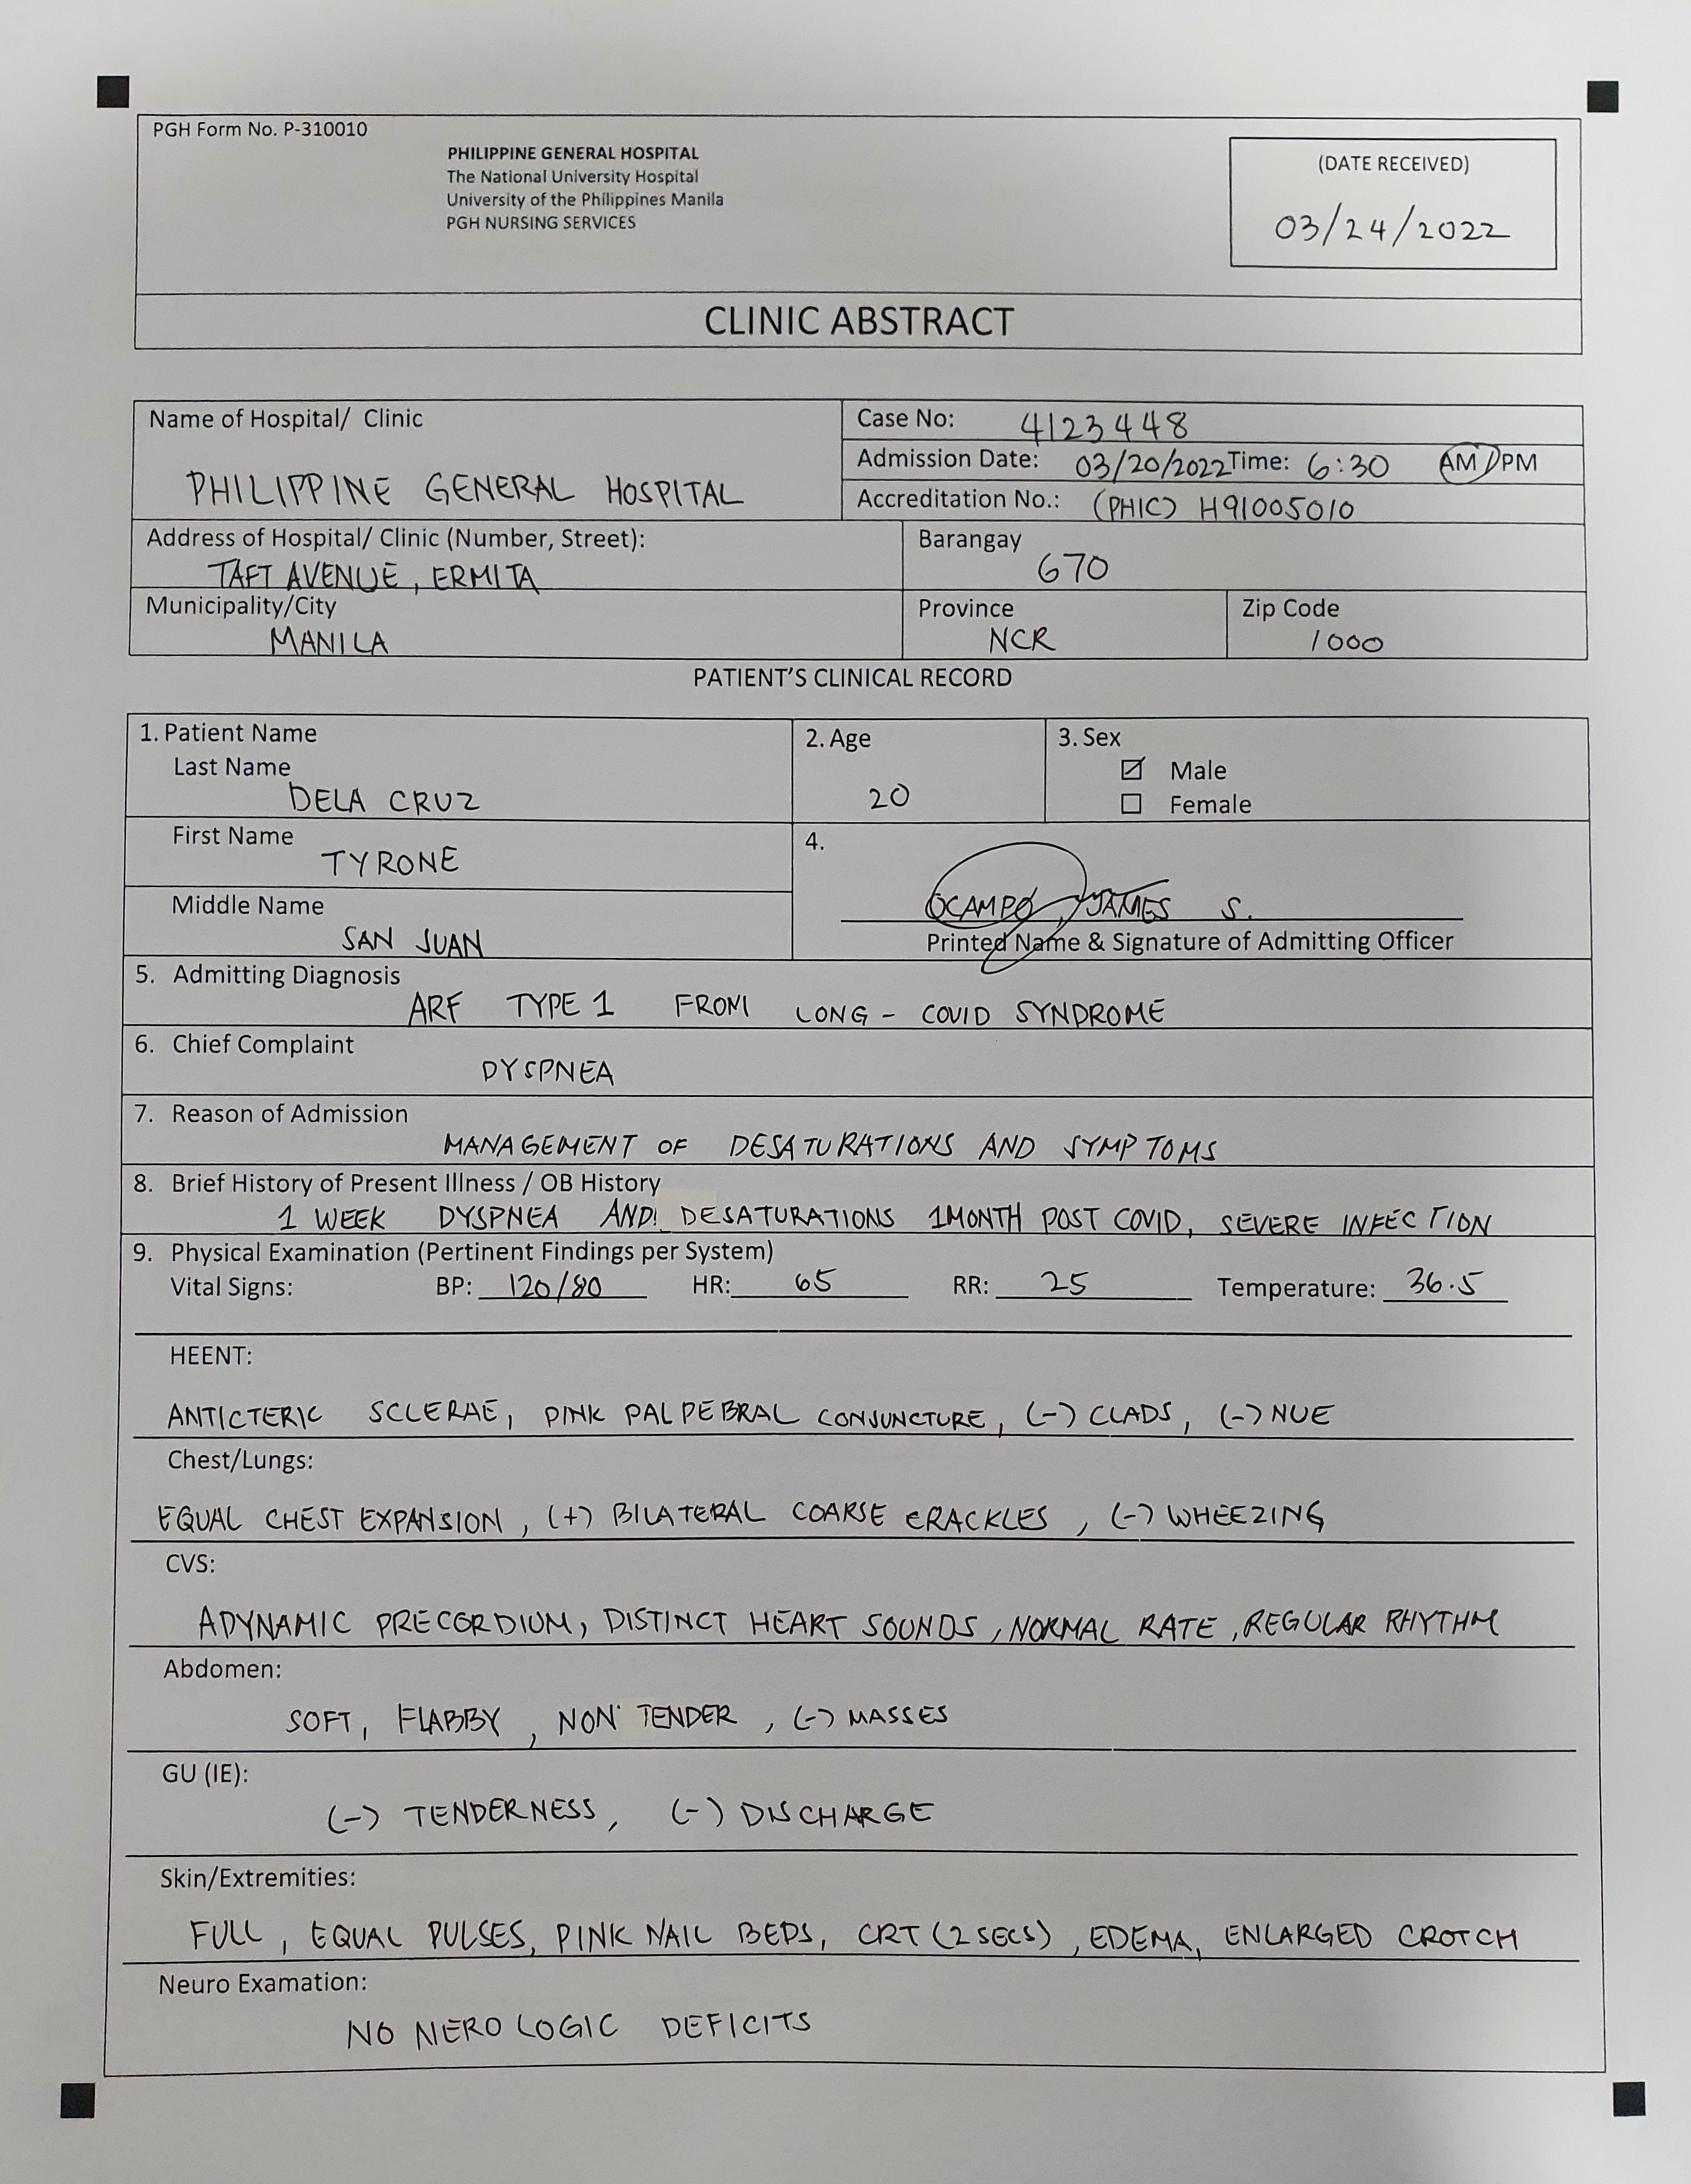 PGH Form No. P-310010
PHILIPPINE GENERAL HOSPITAL
The National University Hospital
University of the Philippines Manila
PGH NURSING SERVICES
(DATE RECEIVED)
03/24/2022
CLINIC ABSTRACT
Name of Hospital/ Clinic
PHILIPPINE GENERAL HOSPITAL
Case No: 4123448
Admission Date: 03/20/2022 Time: 6:30 AM/PM
Accreditation No.: (PHIC) H91005010
Address of Hospital/ Clinic (Number, Street):
TAFT AVENUE, ERMITA
Barangay
670
Municipality/City
MANILA
Province
NCR
Zip Code
1000
PATIENT'S CLINICAL RECORD
1. Patient Name
Last Name
DELA CRUZ
2. Age
20
3. Sex
Male
Female
First Name
TYRONE
Middle Name
SAN JUAN
4.
OCAMPO, JAMES S.
Printed Name & Signature of Admitting Officer
5. Admitting Diagnosis
ARF TYPE 1 FROM LONG - COVID SYNDROME
6. Chief Complaint
DYSPNEA
7. Reason of Admission
MANAGEMENT OF DESATURATIONS AND SYMPTOMS
8. Brief History of Present Illness / OB History
1 WEEK DYSPNEA AND DESATURATIONS 1MONTH POST COVID, SEVERE INFECTION
9. Physical Examination (Pertinent Findings per System)
Vital Signs: BP: 120/80 HR: 65 RR: 25 Temperature: 36.5
HEENT:
ANTICTERIC SCLERAE, PINK PALPEBRAL CONJUNCTURE, (-) CLADS, (-) NUE
Chest/Lungs:
EQUAL CHEST EXPANSION, (+) BILATERAL COARSE CRACKLES, (-) WHEEZING
CVS:
ADYNAMIC PRECORDIUM, DISTINCT HEART SOUNDS, NORMAL RATE, REGULAR RHYTHM
Abdomen:
SOFT, FLABBY, NON TENDER, (-) MASSES
GU (IE):
(-) TENDERNESS, (-) DISCHARGE
Skin/Extremities:
FULL, EQUAL PULSES, PINK NAIL BEDS, CRT (2 SECS), EDEMA, ENLARGED CROTCH
Neuro Examation:
NO NEROLOGIC DEFICITS